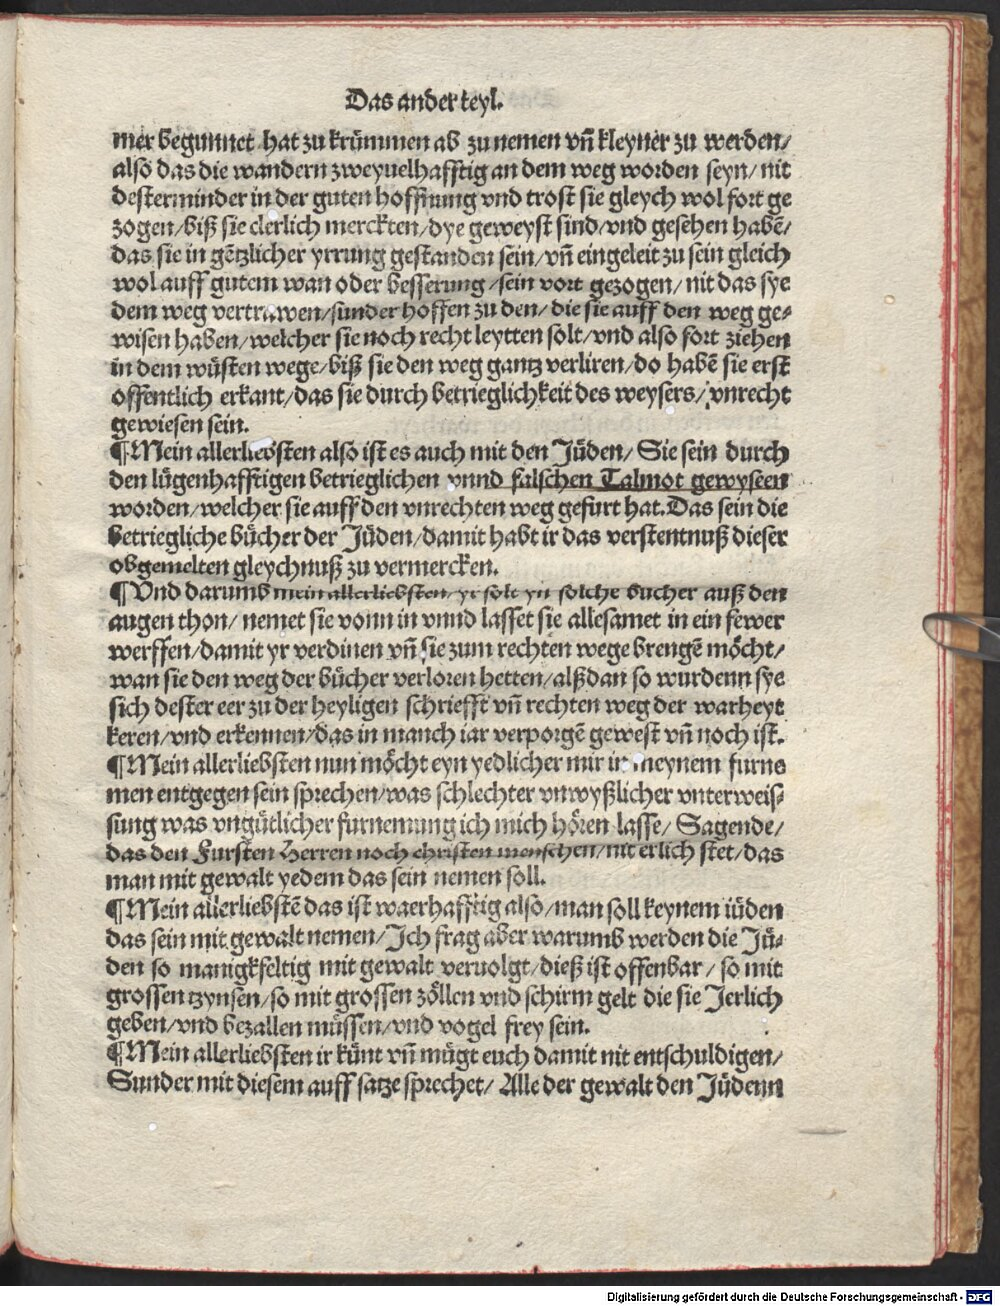 Das ander teyl.
mer begunnet hat zu krümmen ab zu nemen vñ kleyner zu werden/
also das die wandern zweyuelhafftig an dem weg worden seyn/ nit
desterminder in der guten hoffnung vnd trost sie gleych wol fort ge
zogen/biß sie clerlich merckten/dye geweyst sind/vnd gesehen habē/
das sie in gētzlicher yrrung gestanden sein/vñ eingeleit zu sein gleich
wol auff gutem wan oder besserung/sein vort gezogen/ nit das sye
dem weg vertrawen/sunder hoffen zu den/ die sie auff den weg ge⸗
wisen haben/welcher sie noch recht leytten solt/vnd also fort ziehen
in dem wüsten wege/biß sie den weg gantz verliren/do habē sie erst
offentlich erkant/das sie durch betrieglichkeit des weysers/vnrecht
gewiesen sein.
¶Mein allerliebsten also ist es auch mit den Jüden/ Sie sein durch
den lügenhafftigen betrieglichen vnnd falschen Talmot gewyseen
worden/welcher sie auff den vnrechten weg gefurt hat.Das sein die
betriegliche bücher der Jüden/damit habt ir das verstentnuß dieser
obgemelten gleychnuß zu vermercken.
¶Vnd darumb mein allerliebsten/yr solt yn solche bucher auß den
augen thon/ nemet sie vonn in vnnd lasset sie allesamet in ein fewer
werffen/damit yr verdinen vñ sie zum rechten wege brengē möcht/
wan sie den weg der bücher verloren hetten/alßdan so wurdenn sye
sich dester eer zu der heyligen schriefft vñ rechten weg der warheyt
keren/vnd erkennen/das in manch iar verporgē gewest vñ noch ist.
¶Mein allerliebsten nun möcht eyn yedlicher mir in meynem furne
men entgegen sein sprechen/was schlechter vnwyßlicher vnterweis⸗
sung was vngütlicher furnemung ich mich hören lasse/ Sagende/
das den Fursten Herren noch christen menschen/nit erlich stet/das
man mit gewalt yedem das sein nemen soll.
¶Mein allerliebstē das ist waerhafftig also/man soll keynem iüden
das sein mit gewalt nemen/Ich frag aber warumb werden die Jü⸗
den so manigkfeltig mit gewalt veruolgt/dieß ist offenbar/ so mit
grossen tzynsen/so mit grossen zöllen vnd schirm gelt die sie Jerlich
geben/vnd bezallen müssen/vnd vogel frey sein.
¶Mein allerliebsten ir künt vñ mügt euch damit nit entschuldigen/
Sunder mit diesem auff satze sprechet/ Alle der gewalt den Jüdenn
Digitalisierung gefördert durch die Deutsche Forschungsgemeinschaft - DFG